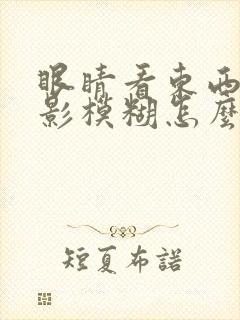 眼睛看東西
影模糊怎麼
短夏布諾